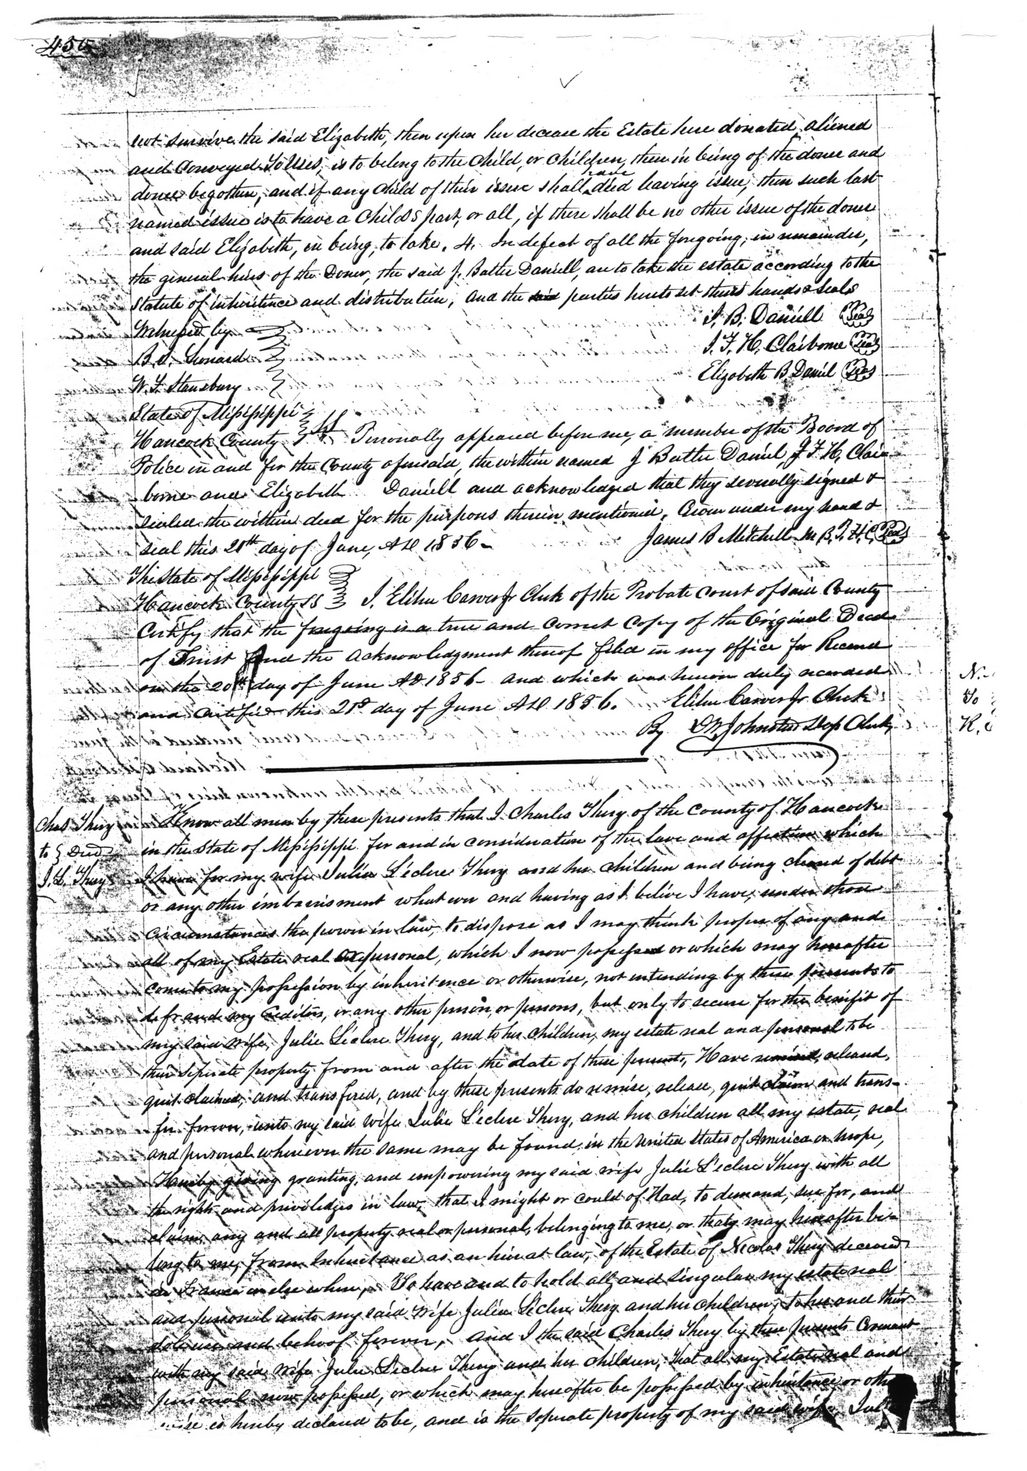 455
not survive the said Elizabeth, then upon her decease the Estate here donated, aliened
and Conveyed To Uses, is to belong to the child, or children, then in being of the donor and
donee begotten, and if any child of their issue shall have died leaving issue, then such last
named issue is to have a Child's part, or all, if there shall be no other issue of the donor
and said Elizabeth, in being, to take. 4. In defeat of all the foregoing, in remainder,
the general heirs of the Donor, the said J. Batter Daniell, are to take the estate according to the
Statute of inheritence and distribution, and the said parties hereto set their hands & seals
Witnessed by
J. B. Daniell Seal
B. Leonard
J. F. H. Claiborne Seal
W. F. Stansbury
Elizabeth B Daniel Seal
State of Mississippi
Hancock County Personally appeared before me, a member of the Board of
Police in and for the County aforesaid, the within named J Batter Daniel, J. F. H. Clai
borne and Elizabeth Daniell and acknowledged that they severally signed &
sealed the within deed for the purposes therein mentioned. Given under my hand &
seal this 20th day of June, AD 1856 James B Mitchell M. B. P. H. C. Seal
The State of Mississippi
Hancock County SS I, Elihu Carver Jr Clerk of the Probate court of said County
Certify that the foregoing is a true and correct copy of the Original Deed
of Trust and the acknowledgment thereof filed in my office for Record
on the 20th day of June AD 1856 and which was hereon duly recorded
and certified this 21st day of June AD 1856. Elihu Carver Jr Clerk
By D. W. Johnston Dep Clerk
Chas Thery
to } Deed
J. L. Thery
Know all men by these presents that I Charles Thery of the County of Hancock
in the State of Mississippi for and in consideration of the love and affection which
I have for my wife Julia Leclere Thery and her children and being cleared of debt
or any other imbarrisment whatever and having as I belive I have, under those
circumstances the power in law, to dispose as I may think proper of any and
all of my Estate real or personal, which I now possessed or which may hereafter
come to my possession by inheritence or otherwise, not intending by these presents to
defraud my Creditors, or any other person or persons, but only to secure for the benifit of
my said wife, Julie Leclere Thery, and to her children, my estate real and personal to be
their seperate property from and after the date of these presents, Have remised, released,
quit claimed, and transfired, and by these presents do remise, release, quit claim and trans-
fer forever, unto my said wife Julie Leclere Thery, and her children all my estate, real
and personal wherever the same may be found, in the United States of America or Europe,
Hereby giving granting, and empowering my said wife Julie Leclere Thery with all
the rights and priviledges in law, that I might or could of Had, to demand, sue for, and
claim, any and all property real or personal, belonging to me, or that may hereafter be-
long to me, from Inheritance as an heir at law, of the Estate of Nicolas Thery deceased
in France or else where. To have and to hold all and singular my estate real
and personal unto my said Wife Julia Leclere Thery and her children, to her and their
sole use and behoof forever, And I the said Charles Thery by these presents Covenant
with my said Wife Julie Leclere Thery and her children, that all my Estate real and
personal now possessed, or which may hereafter be possessed by inheritance or other
wise is hereby declared to be, and is the seperate property of my said wife, Julie
N.
To
K.